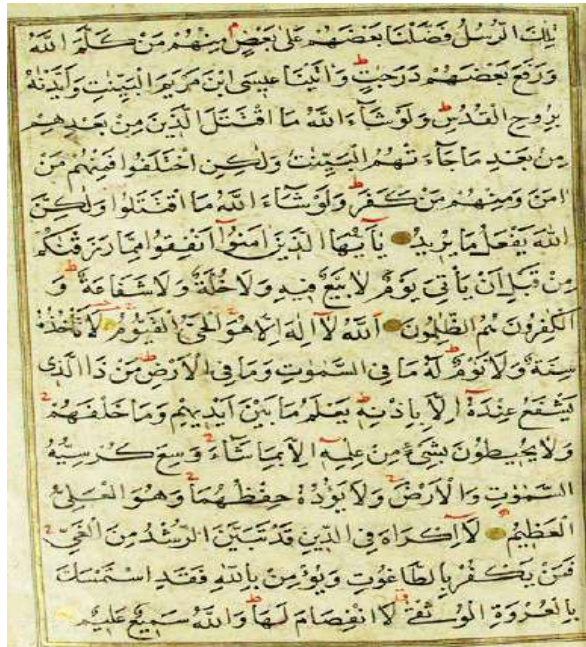 تِلْكَ الرُّسُلُ فَضَّلْنَا بَعْضَهُمْ عَلَىٰ بَعْضٍ م مِنْهُمْ مَنْ كَلَّمَ اللَّهُ
وَرَفَعَ بَعْضَهُمْ دَرَجَاتٍ ط وَاٰتَيْنَا عِيسَى ابْنَ مَرْيَمَ الْبَيِّنٰتِ وَاَيَّدْنٰهُ
بِرُوحِ الْقُدُسِ ط وَلَوْ شَاءَ اللَّهُ مَا اقْتَتَلَ الَّذِينَ مِنْ بَعْدِهِمْ
مِنْ بَعْدِ مَا جَاءَتْهُمُ الْبَيِّنٰتُ وَلٰكِنِ اخْتَلَفُوا فَمِنْهُمْ مَنْ
اٰمَنَ وَمِنْهُمْ مَنْ كَفَرَ ط وَلَوْ شَاءَ اللَّهُ مَا اقْتَتَلُوا وَلٰكِنَّ
اللَّهَ يَفْعَلُ مَا يُرِيدُ يَاۤ اَيُّهَا الَّذِينَ اٰمَنُوا اَنْفِقُوا مِمَّا رَزَقْنٰكُمْ
مِنْ قَبْلِ اَنْ يَأْتِيَ يَوْمٌ لَا بَيْعٌ فِيهِ وَلَا خُلَّةٌ وَلَا شَفَاعَةٌ ط وَ
الْكٰفِرُونَ هُمُ الظّٰلِمُونَ اَللَّهُ لَاۤ اِلٰهَ اِلَّا هُوَ الْحَيُّ الْقَيُّومُ لَا تَأْخُذُهُ
سِنَةٌ وَلَا نَوْمٌ ط لَهُ مَا فِي السَّمٰوٰتِ وَمَا فِي الْاَرْضِ ط مَنْ ذَا الَّذِي
يَشْفَعُ عِنْدَهُ اِلَّا بِاِذْنِهِ ط يَعْلَمُ مَا بَيْنَ اَيْدِيهِمْ وَمَا خَلْفَهُمْ
وَلَا يُحِيطُونَ بِشَيْءٍ مِنْ عِلْمِهِ اِلَّا بِمَا شَاءَ وَسِعَ كُرْسِيُّهُ
السَّمٰوٰتِ وَالْاَرْضَ وَلَا يَؤُدُهُ حِفْظُهُمَا وَهُوَ الْعَلِيُّ
الْعَظِيمُ لَاۤ اِكْرَاهَ فِي الدِّينِ قَدْ تَبَيَّنَ الرُّشْدُ مِنَ الْغَيِّ
فَمَنْ يَكْفُرْ بِالطَّاغُوتِ وَيُؤْمِنْ بِاللَّهِ فَقَدِ اسْتَمْسَكَ
بِالْعُرْوَةِ الْوُثْقٰى لَا انْفِصَامَ لَهَا ط وَاللَّهُ سَمِيعٌ عَلِيمٌ